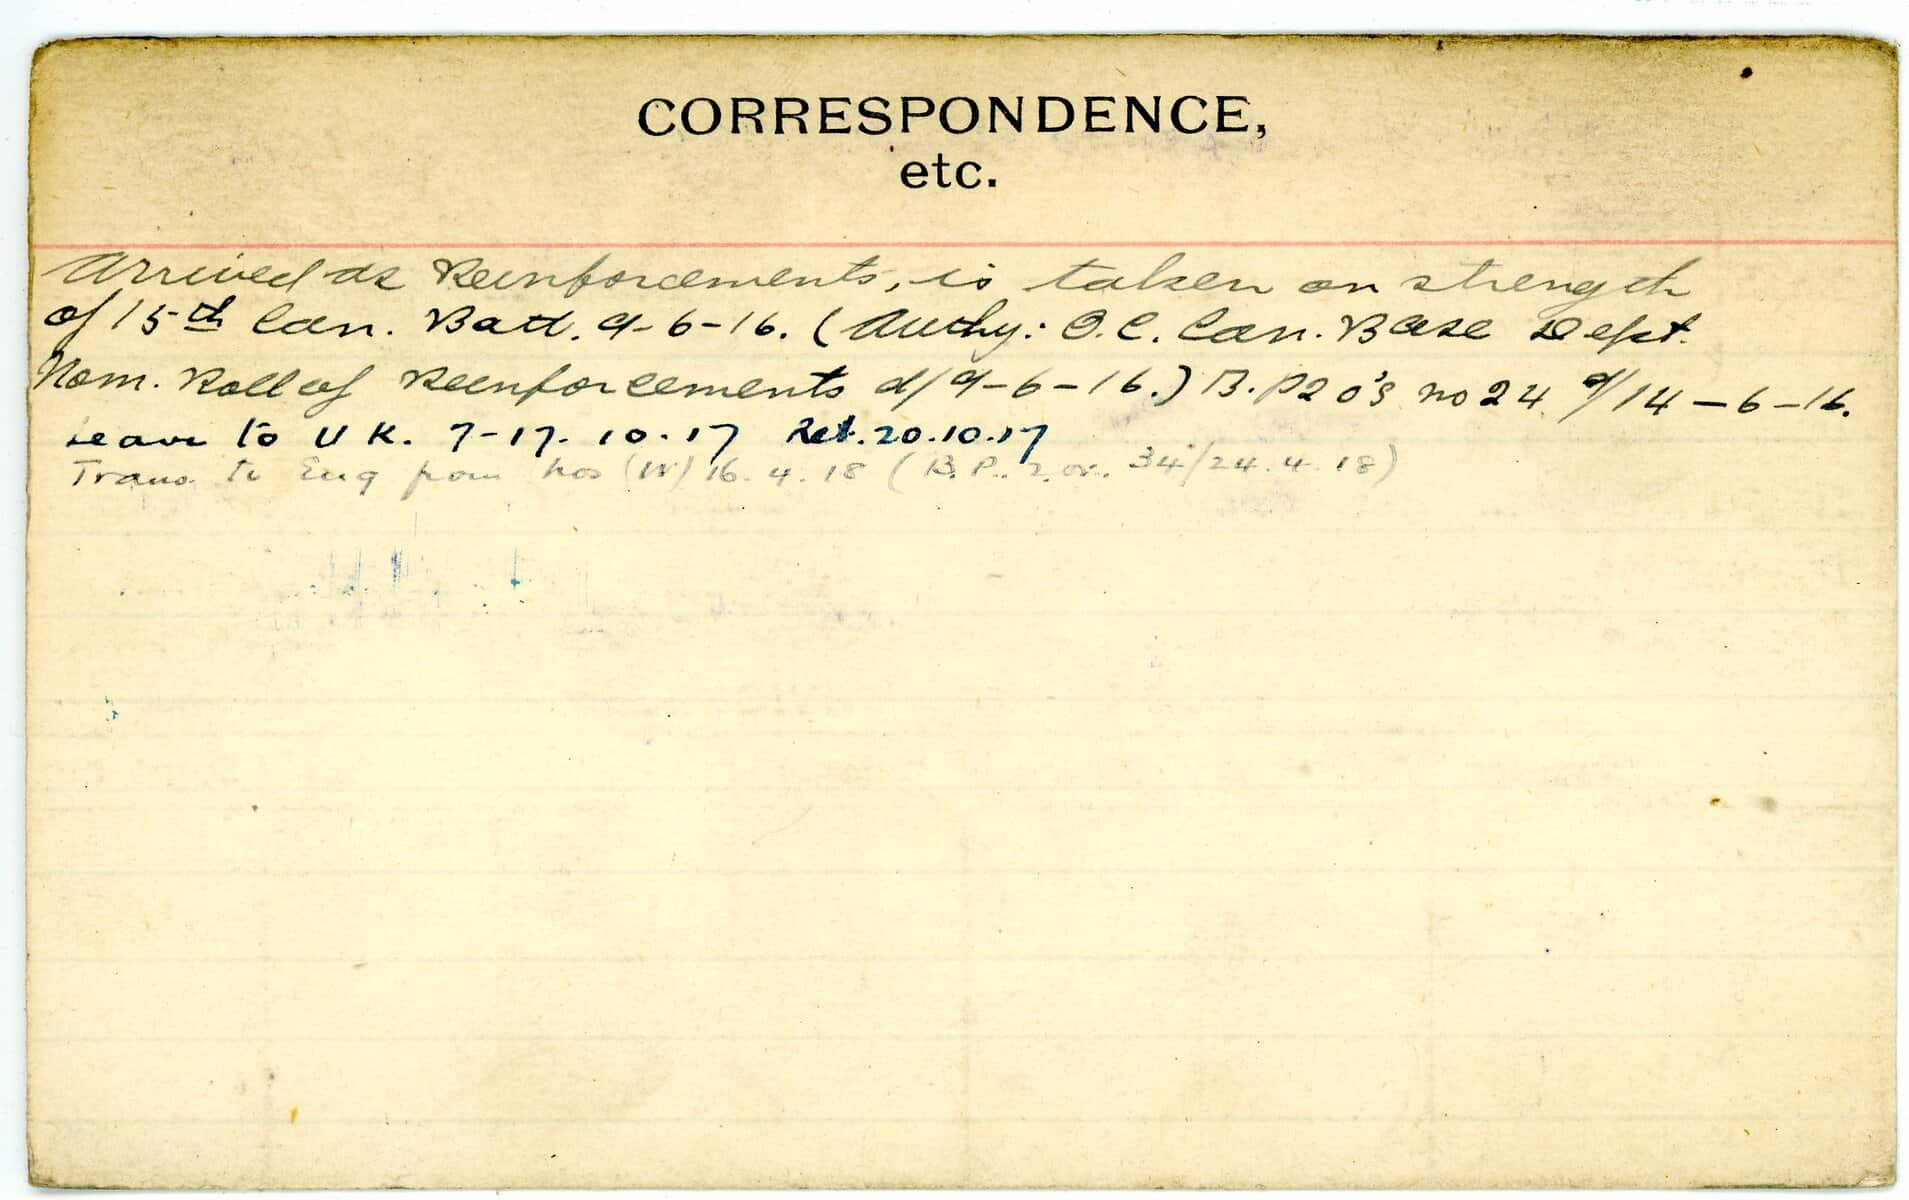 CORRESPONDENCE,
etc.
Arrived as Reinforcements, is taken on strength
of 15th Can. Batt. 9-6-16. (Authy: O.C. Can. Base Dept.
Nom. Roll of Reinforcements d/9-6-16.) B. P2 O's no 24 d/14-6-16.
Leave to U K. 7-17.10.17 Ret. 20.10.17
Trans. to Eng from hos (W) 16.4.18 (B.P. 2. or. 34/24.4.18)